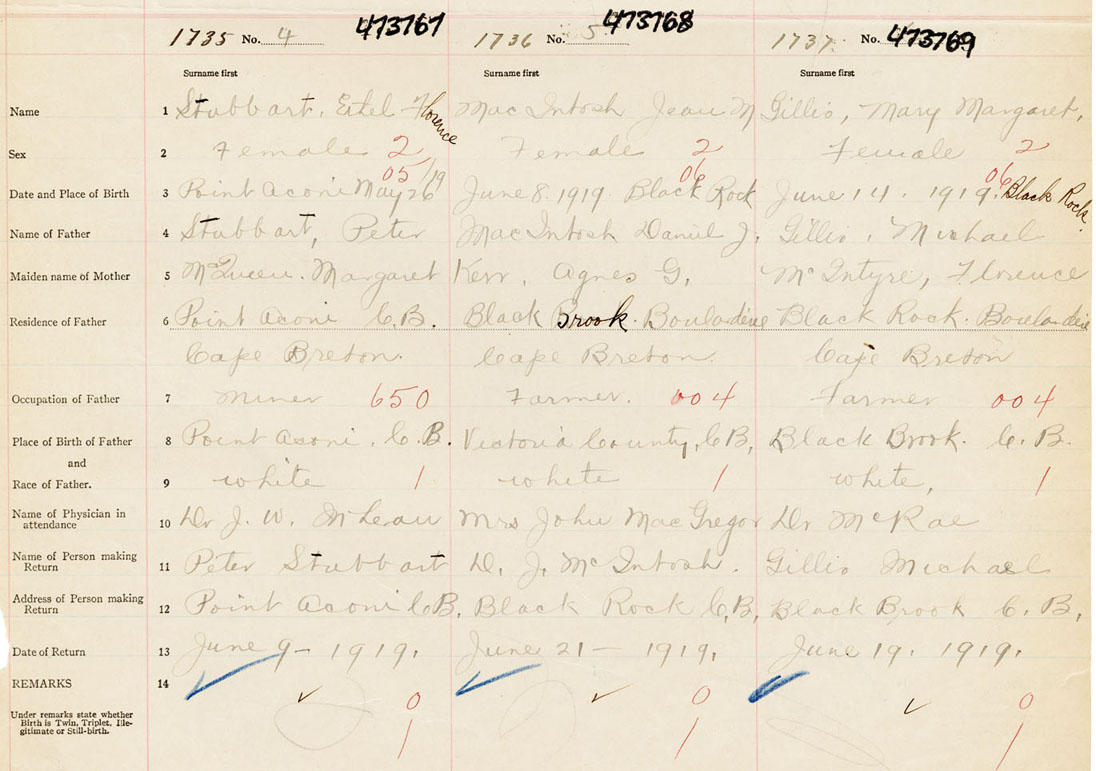 1735 No. 4 473767 1736 No. 5 473768 1737 No. 473769
Surname first Surname first Surname first
Name 1 Stubbart, Ethel Florence MacIntosh Jean M Gillis, Mary Margaret,
Sex 2 Female 2 Female 2 Female 2
05 06 06
Date and Place of Birth 3 Point Aconi May 26/19 June 8. 1919. Black Rock June 14. 1919. Black Rock.
Name of Father 4 Stubbart, Peter MacIntosh Daniel J. Gillis, Michael
Maiden name of Mother 5 McQueen. Margaret Kerr, Agnes G, McIntyre, Florence
Residence of Father 6 Point Aconi C.B. Black Brook. Boulardrie Black Rock. Boulardrie
Cape Breton. Cape Breton. Cape Breton
Occupation of Father 7 Miner 650 Farmer. 004 Farmer 004
Place of Birth of Father 8 Point Aconi, C.B. Victoria County, C.B, Black Brook. C. B.
and
Race of Father. 9 white 1 white 1 white, 1
Name of Physician in
attendance 10 Dr J. W. McLean Mrs John MacGregor Dr McRae
Name of Person making
Return 11 Peter Stubbart D. J. McIntosh. Gillis Michael
Address of Person making
Return 12 Point Aconi C.B. Black Rock C.B, Black Brook C. B,
Date of Return 13 June 9- 1919. June 21- 1919. June 19. 1919.
REMARKS 14
0 0 0
Under remarks state whether
Birth is Twin, Triplet, Ille-
gitimate or Still-birth. 1 1 1